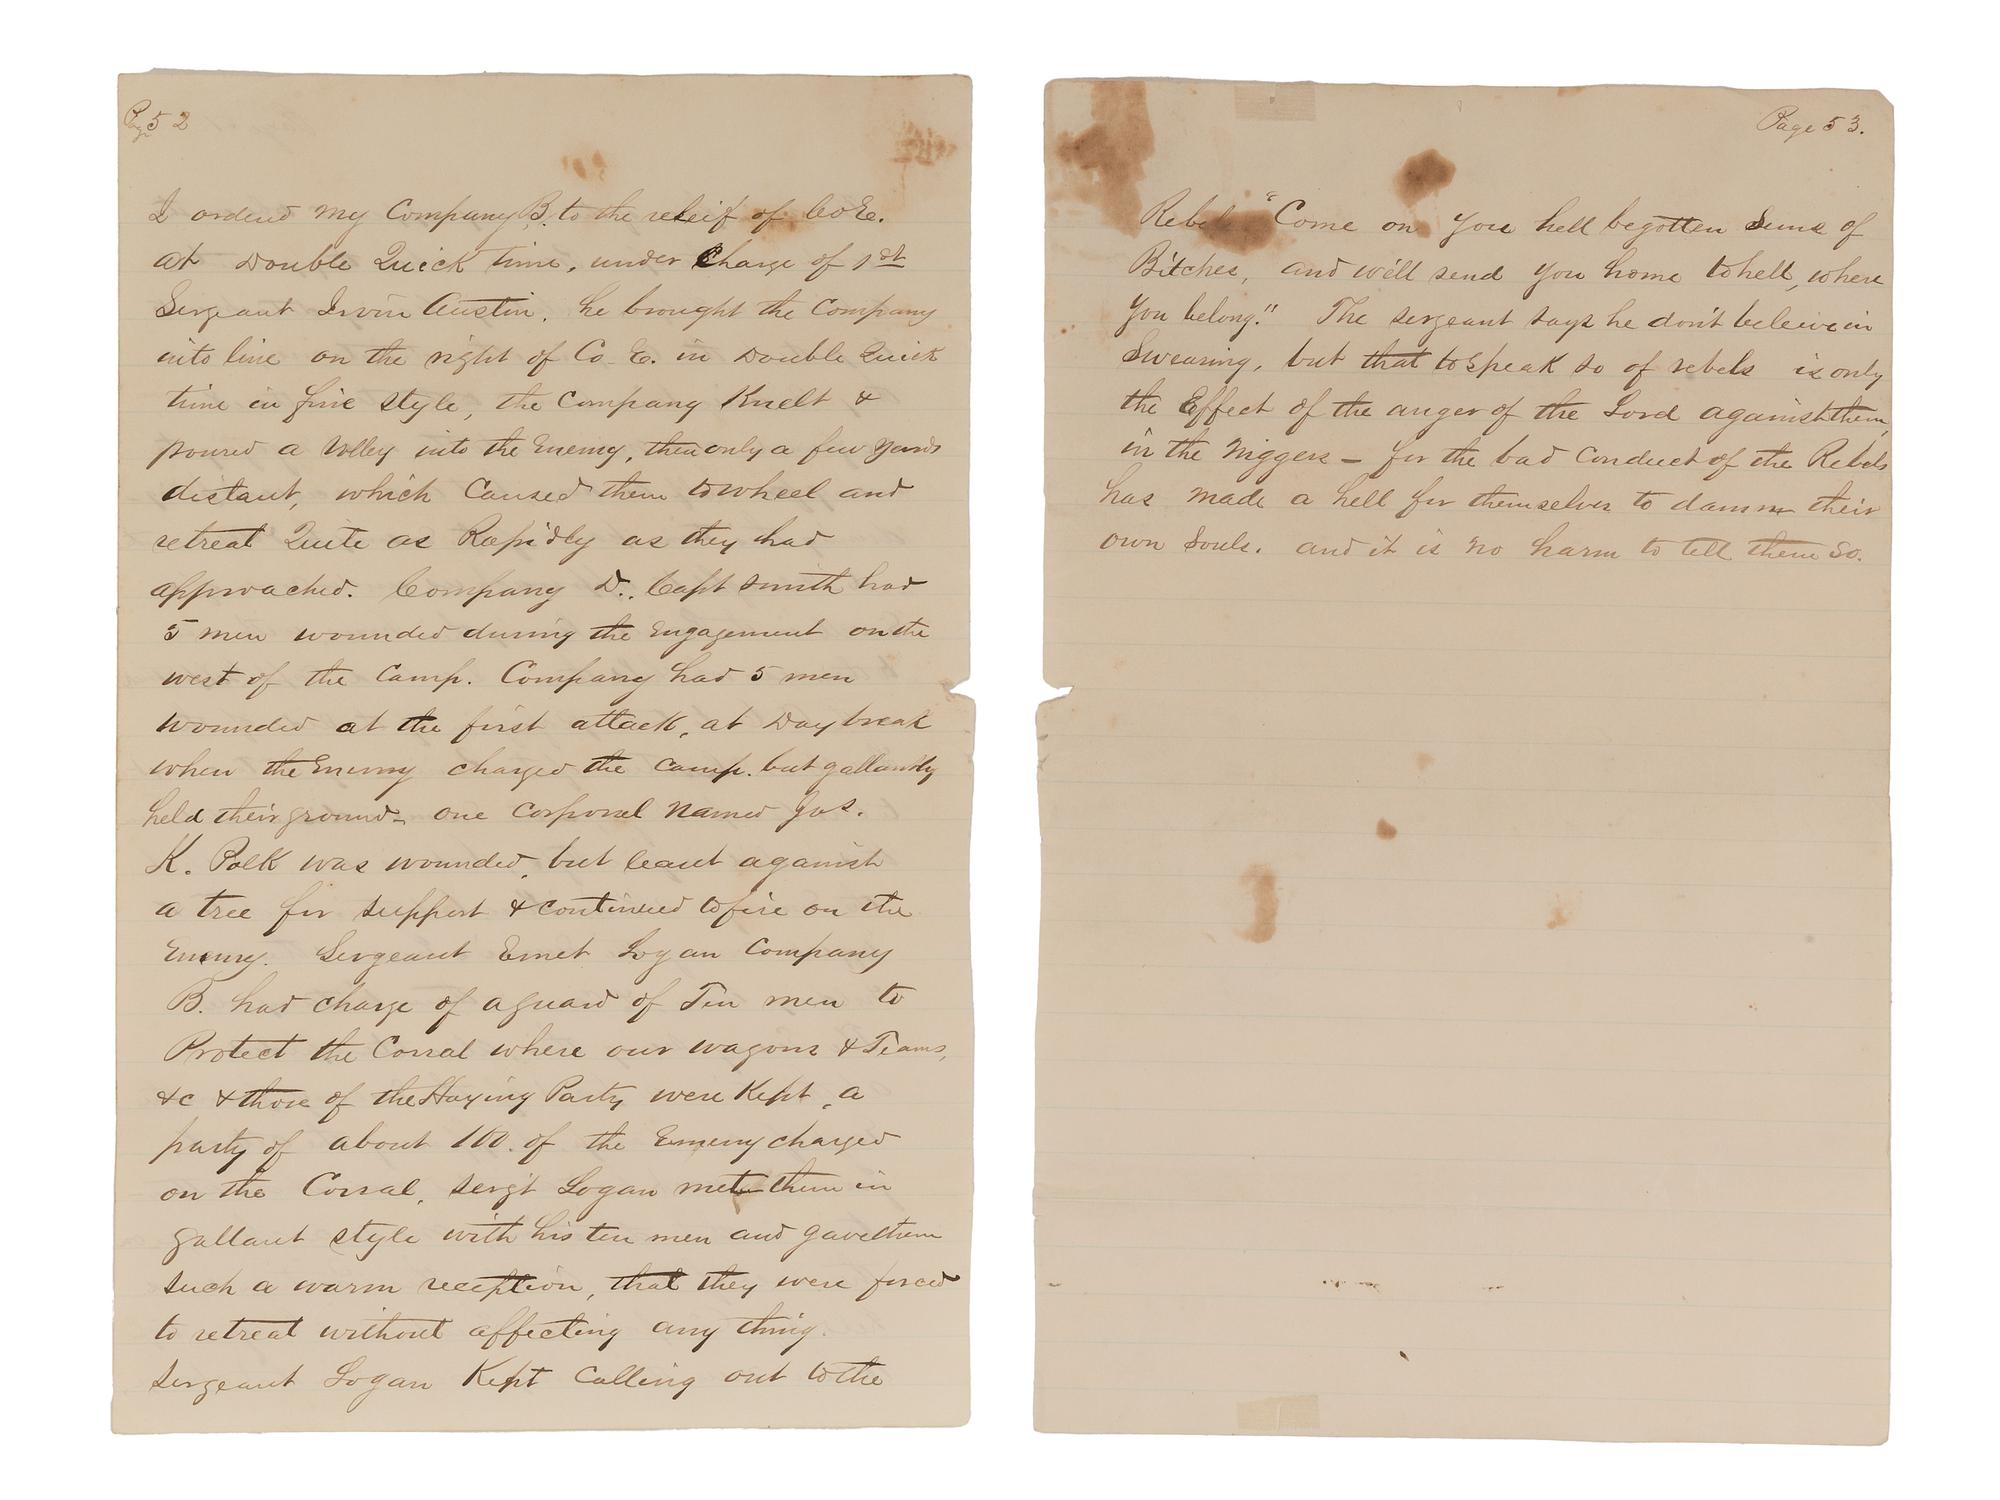 Page 52
I ordered my Company B. to the releif of Co E.
at Double Quick time, under Charge of 1st
Sergeant Irvin Austin. he brought the Company
into line on the right of Co. E. in Double Quick
time in fine style, the Company Knelt &
poured a Volley into the Enemy, then only a few yards
distant, which Caused them to wheel and
retreat Quite as Rapidly as they had
approached. Company D., Capt Smith had
5 men wounded during the Engagement on the
west of the Camp. Company had 5 men
wounded at the first attack, at Day break
when the Enemy charged the Camp. but gallantly
held their ground - one Corporal Named Jas.
K. Polk was wounded, but leant against
a tree for support & continued to fire on the
Enemy. Sergeant Emet Logan Company
B. had charge of a guard of Ten men to
Protect the Corral where our wagons & Teams,
&c & those of the Haying Party were Kept, a
party of about 100. of the Enemy charged
on the Corral, Sergt Logan met them in
gallant style with his ten men and gave them
such a warm reception, that they were forced
to retreat without affecting any thing.
Sergeant Logan Kept Calling out to the
Page 53.
Rebels "Come on you hell begotten Suns of
Bitches, and we'll send you home to hell, where
you belong." The sergeant says he don't beleive in
Swearing, but that to speak so of rebels is only
the Effect of the anger of the Lord against them,
in the Niggers - for the bad Conduct of the Rebels
has made a hell for themselves to damm their
own Souls. and it is no harm to tell them So.